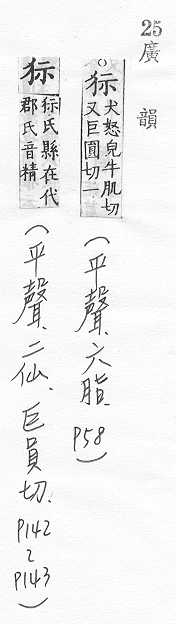 25
廣韻
○狋
犬怒皃牛肌切
又巨圓切一
(平聲、六脂、P58)
狋
狋氏縣在代
郡氏音精
(平聲、二仙、巨員切、P142~P143)